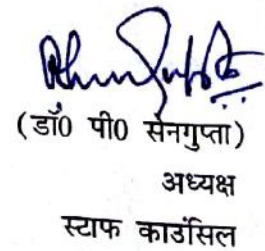 (डॉ0 पी0 सेनगुप्ता)
अध्यक्ष
स्टाफ काउंसिल